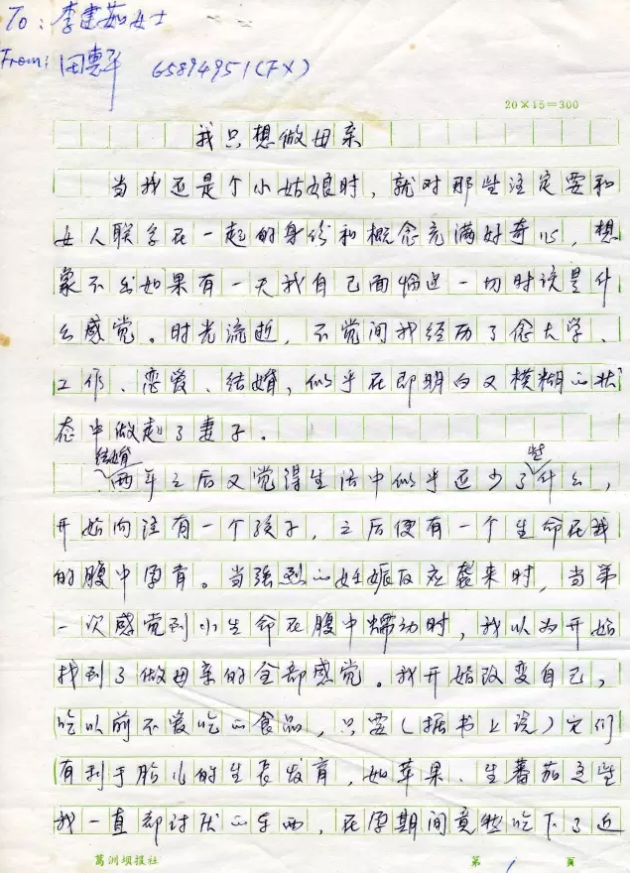 To: 李建茹女士
From: 田惠平 65894951(FX)
20×15=300
我只想做母亲
当我还是个小姑娘时，就对那些注定要和
女人联系在一起的身份和概念充满好奇心，想
象不出如果有一天我自己面临这一切时该是什
么感觉。时光流逝，不觉间我经历了念大学、
工作、恋爱、结婚，似乎在即明白又模糊的状
态中做起了妻子。
结婚两年之后又觉得生活中似乎还少了些什么，
开始向往有一个孩子，之后便有一个生命在我
的腹中孕育。当强烈的妊娠反应袭来时，当第
一次感觉到小生命在腹中蠕动时，我以为开始
找到了做母亲的全部感觉。我开始改变自己，
吃以前不爱吃的食品，只要（据书上说）它们
有利于胎儿的生长发育，如苹果、生蕃茄这些
我一直都讨厌的东西，在孕期间竟然吃下了近
葛洲坝报社 第 1 页